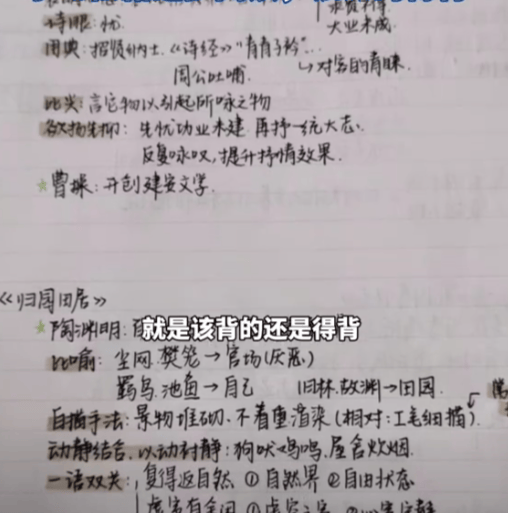 求贤不得
诗眼：忧
大业未成
用典：招贤纳士.《诗经》"青青子衿"…
周公吐哺.
↳对客的青睐.
比兴：言它物以引起所咏之物
欲扬先抑：先忧功业未建 再抒一统大志.
反复咏叹,提升抒情效果.
★曹操：开创建安文学.
《归园田居》
★陶渊明：
就是该背的还是得背
比喻：尘网.樊笼→官场(厌恶)
羁鸟.池鱼→自己 旧林.故渊→田园.
白描手法：景物堆砌.不着重渲染(相对:工笔细描)
动静结合,以动衬静：狗吠鸡鸣,屋舍炊烟.
一语双关：复得返自然. ①自然界 ②自由状态
虚室有余闲